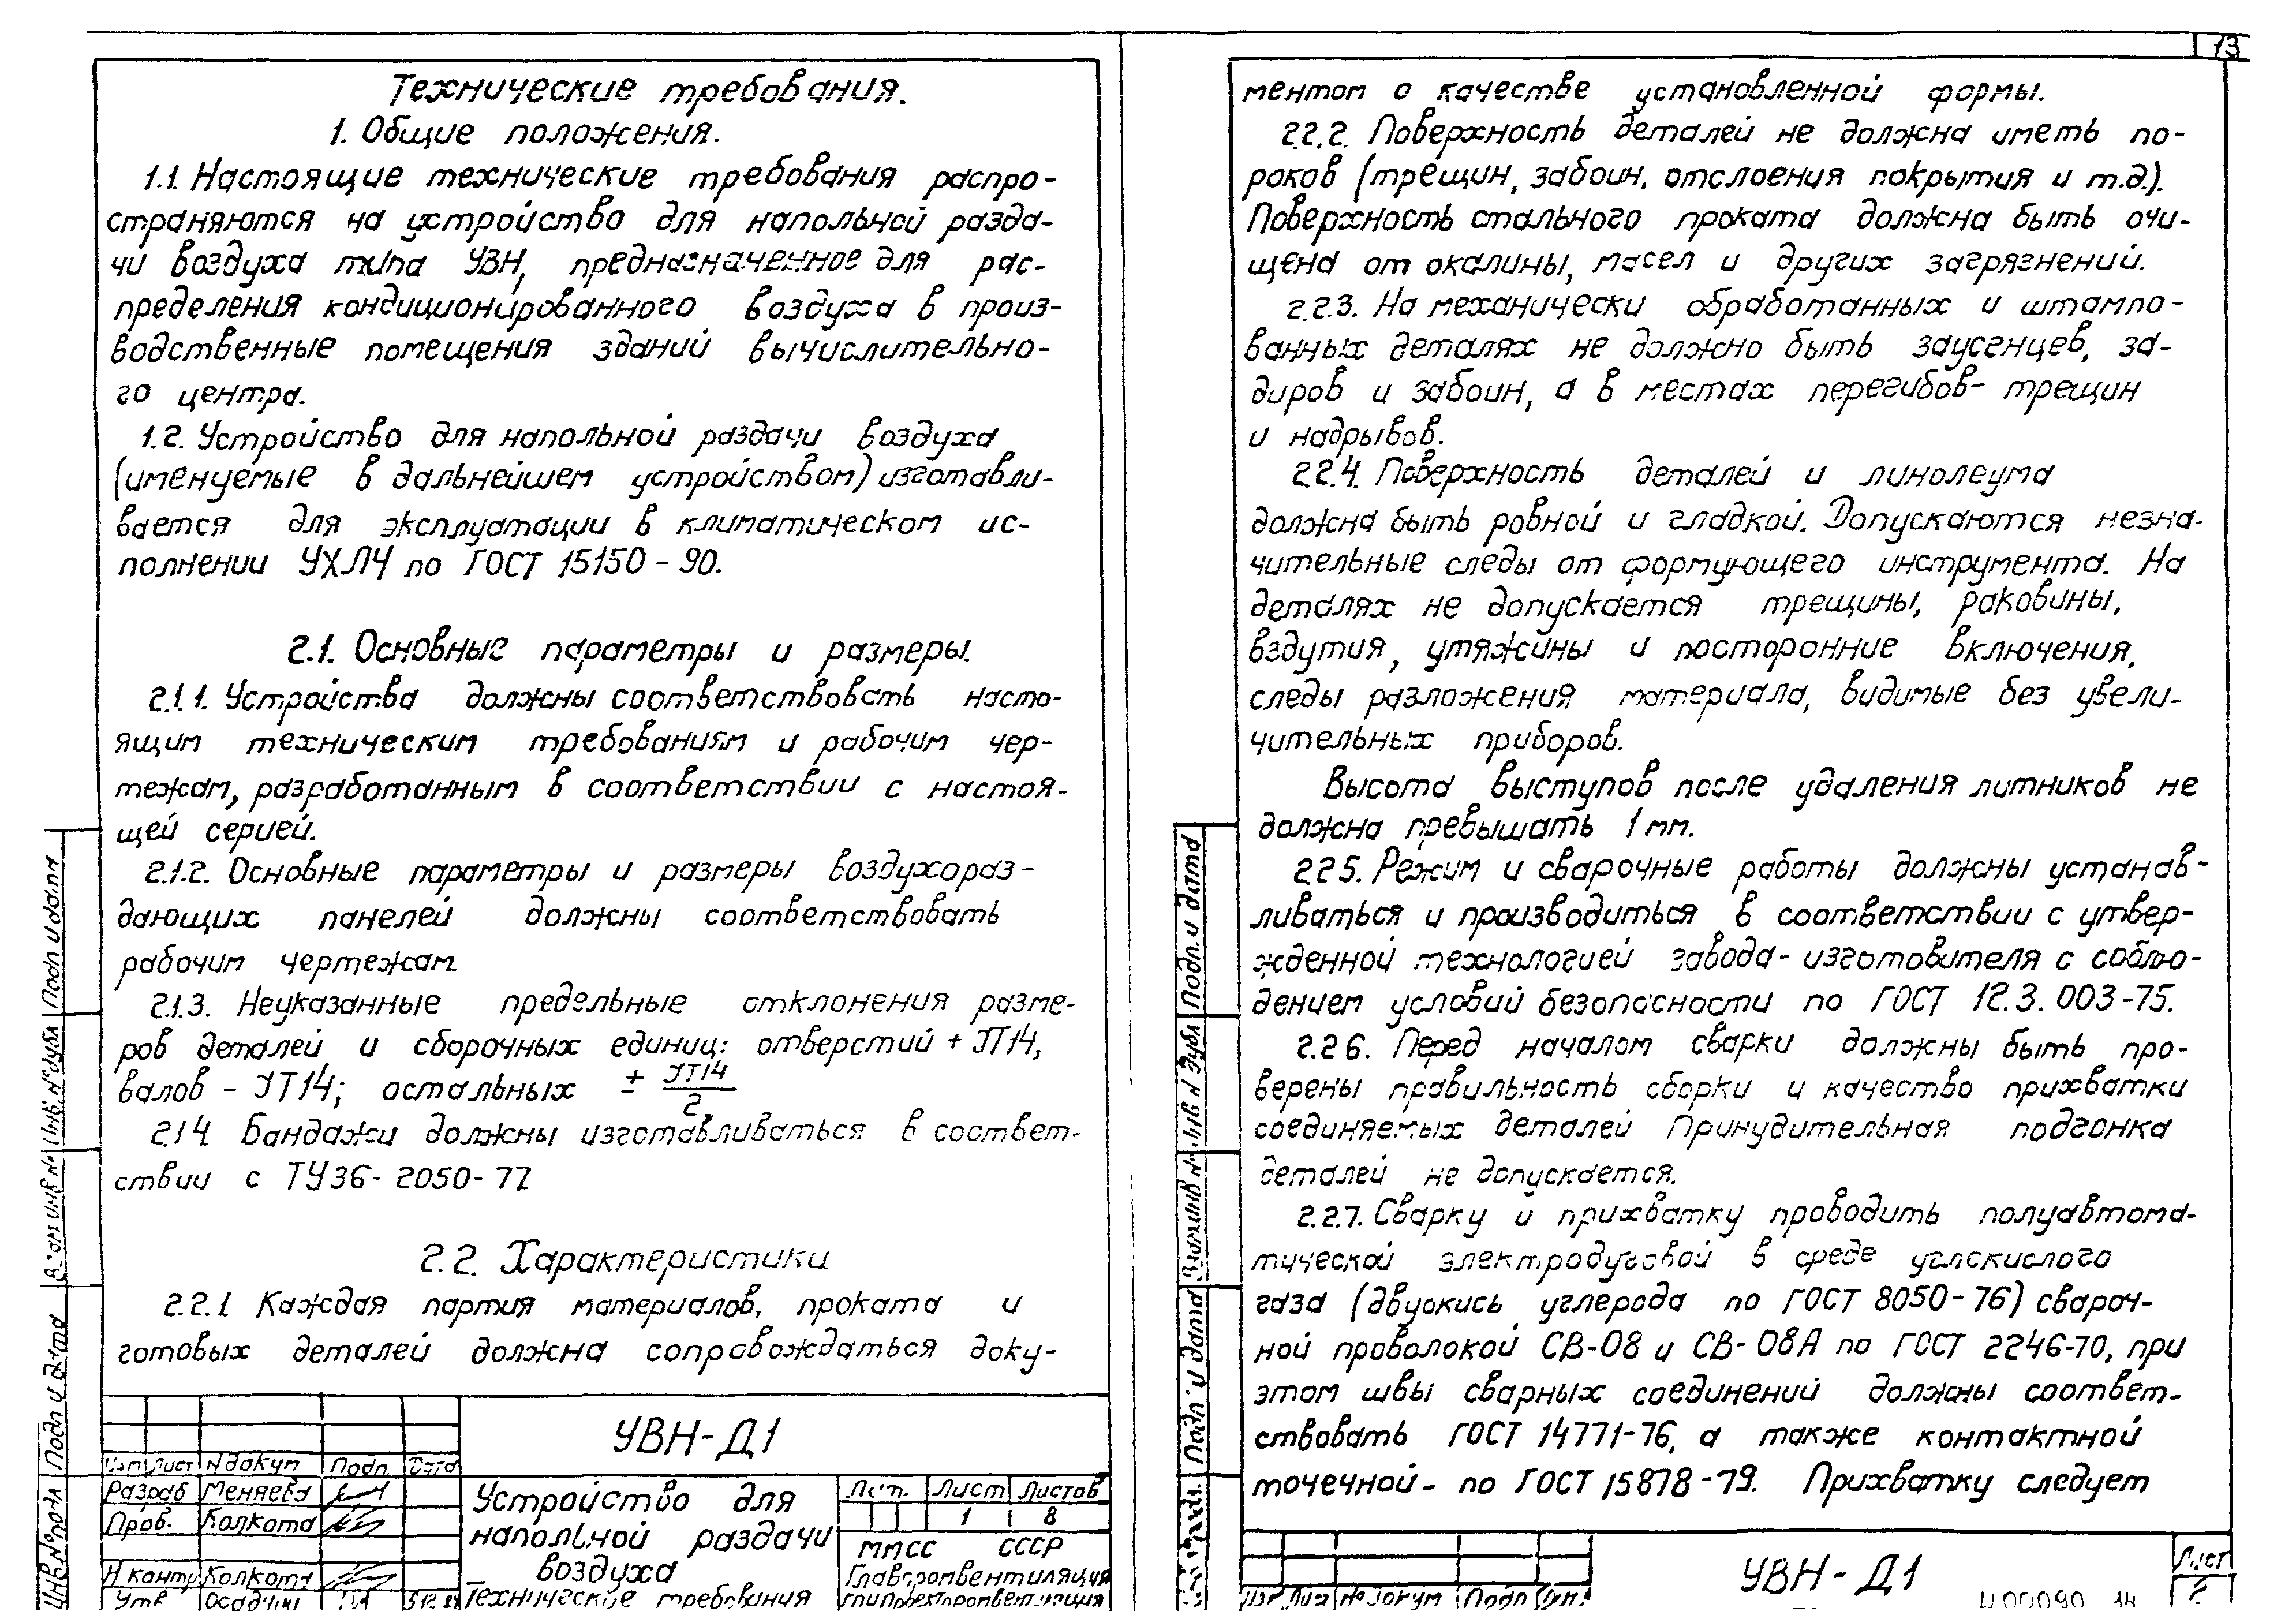 13
Технические требования.
1. Общие положения.
1.1. Настоящие технические требования распро-
страняются на устройство для напольной разда-
чи воздуха типа УВН, предназначенное для рас-
пределения кондиционированного воздуха в произ-
водственные помещения зданий вычислительно-
го центра.
1.2. Устройство для напольной раздачи воздуха
(именуемые в дальнейшем устройством) изготавли-
вается для эксплуатации в климатическом ис-
полнении УХЛ4 по ГОСТ 15150-90.
2.1. Основные параметры и размеры.
2.1.1. Устройства должны соответствовать насто-
ящим техническим требованиям и рабочим чер-
тежам, разработанным в соответствии с настоя-
щей серией.
2.1.2. Основные параметры и размеры воздухораз-
дающих панелей должны соответствовать
рабочим чертежам
2.1.3. Неуказанные предельные отклонения разме-
ров деталей и сборочных единиц: отверстий + JT14,
валов - JT14; остальных ± JT14/2,
2.1.4 Бандажи должны изготавливаться в соответ-
ствии с ТУ36-2050-77
2.2. Характеристики
2.2.1 Каждая партия материалов, проката и
готовых деталей должна сопровождаться доку-
ментом о качестве установленной формы.
2.2.2. Поверхность деталей не должна иметь по-
роков (трещин, забоин, отслоения покрытия и т.д.).
Поверхность стального проката должна быть очи-
щена от окалины, масел и других загрязнений.
2.2.3. На механически обработанных и штампо-
ванных деталях не должно быть заусенцев, за-
диров и забоин, а в местах перегибов - трещин
и надрывов.
2.2.4. Поверхность деталей и линолеума
должна быть ровной и гладкой. Допускаются незна-
чительные следы от формующего инструмента. На
деталях не допускается трещины, раковины,
вздутия, утяжины и посторонние включения,
следы разложения материала, видимые без увели-
чительных приборов.
Высота выступов после удаления литников не
должна превышать 1 мм.
2.2.5. Режим и сварочные работы должны устанав-
ливаться и производиться в соответствии с утвер-
жденной технологией завода-изготовителя с соблю-
дением условий безопасности по ГОСТ 12.3.003-75.
2.2.6. Перед началом сварки должны быть про-
верены правильность сборки и качество прихватки
соединяемых деталей Принудительная подгонка
деталей не допускается.
2.2.7. Сварку и прихватку проводить полуавтома-
тической электродуговой в среде углекислого
газа (двуокись углерода по ГОСТ 8050-76) свароч-
ной проволокой СВ-08 и СВ-08А по ГОСТ 2246-70, при
этом швы сварных соединений должны соответ-
ствовать ГОСТ 14771-76, а также контактной
точечной - по ГОСТ 15878-79. Прихватку следует
УВН-Д1
Изм Лист N докум Подп. Дата
Разраб Меняева
Пров. Колкота
Н контр Колкота
Утв
Устройство для
напольной раздачи
воздуха
Технические требования
Лит. Лист Листов
1 8
ММСС СССР
Главпромвентиляция
Инв. N подл Подп и дата Взам инв N Инв. N дубл Подп и дата
Подп и дата Взам инв N Инв N дубл Подп. и дата
Лист № докум Подп
УВН-Д1
Лист
2
Ц00090 14